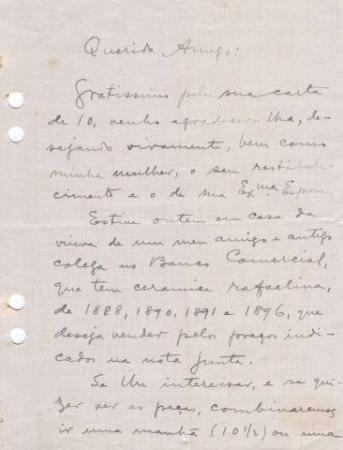 Querido Amigo:
Gratissimo pela sua carta
de 10, venho agradecer-lha, de-
sejando vivamente, bem como
minha mulher, o seu restabele-
cimento e o de sua Exma Esposa.
Estive ontem em casa da
viuva de um meu amigo e antigo
colega no Banco Comercial,
que tem ceramica rafaelina,
de 1888, 1890, 1891 e 1896, que
deseja vender pelos preços indi-
cados na nota junta.
Se lhe interessar, e se qui-
zer ver as peças, combinaremos
ir uma manhã (10 1/2) ou uma